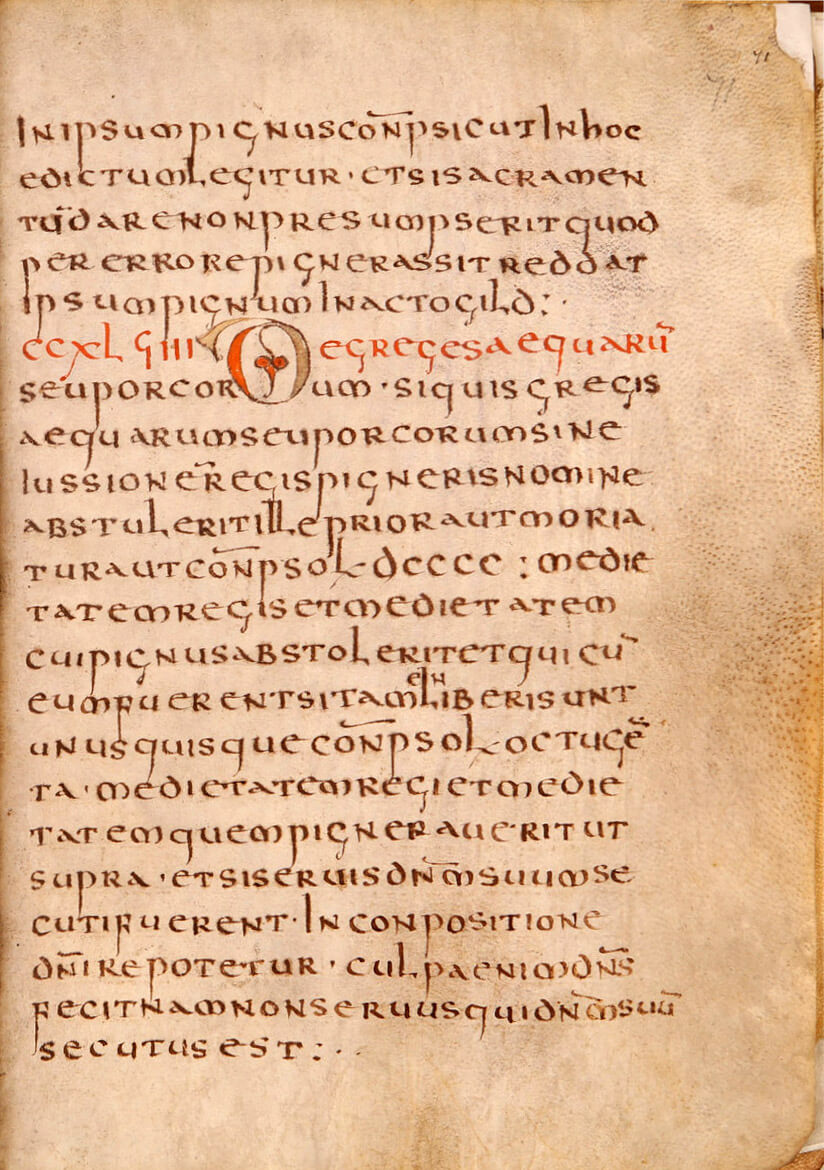 71
71
IN IPSUM PIGNUS CON̅P SICUT IN HOC
EDICTUM LEGITUR · ET SI SACRAMEN
TU̅ DARE NON PRESUMPSERIT QUOD
PER ERRORE PIGNERASSIT REDDAT
IPSUM PIGNUM IN ACTOGILD : ·
CCXLVIIII DE GREGES AEQUARU̅
SEU PORCORUM · SI QUIS GREGIS
AEQUARUM SEU PORCORUM SINE
IUSSIONE REGIS PIGNERIS NOMINE
ABSTULERIT ILLE PRIOR AUT MORIA
TUR AUT CON̅P SOL DCCCC : MEDIE
TATEM REGIS ET MEDIETATEM
CUI PIGNUS ABSTOLERIT ET QUI CU̅
EUM FUERENT SI TAMEN LIBERI SUNT
UNUSQUISQUE CON̅P SOL OCTUGE̅
TA · MEDIETATEM REGI ET MEDIE
TATEM QUEM PIGNERAUERIT UT
SUPRA · ET SI SERUIS DN̅M̅ SUUM SE
CUTI FUERENT · IN CONPOSITIONE
DN̅I REPOTETUR · CULPA ENIM DN̅S
FECIT NAM NON SERUUS QUI DN̅M̅ SUU̅
SECUTUS EST : · ·